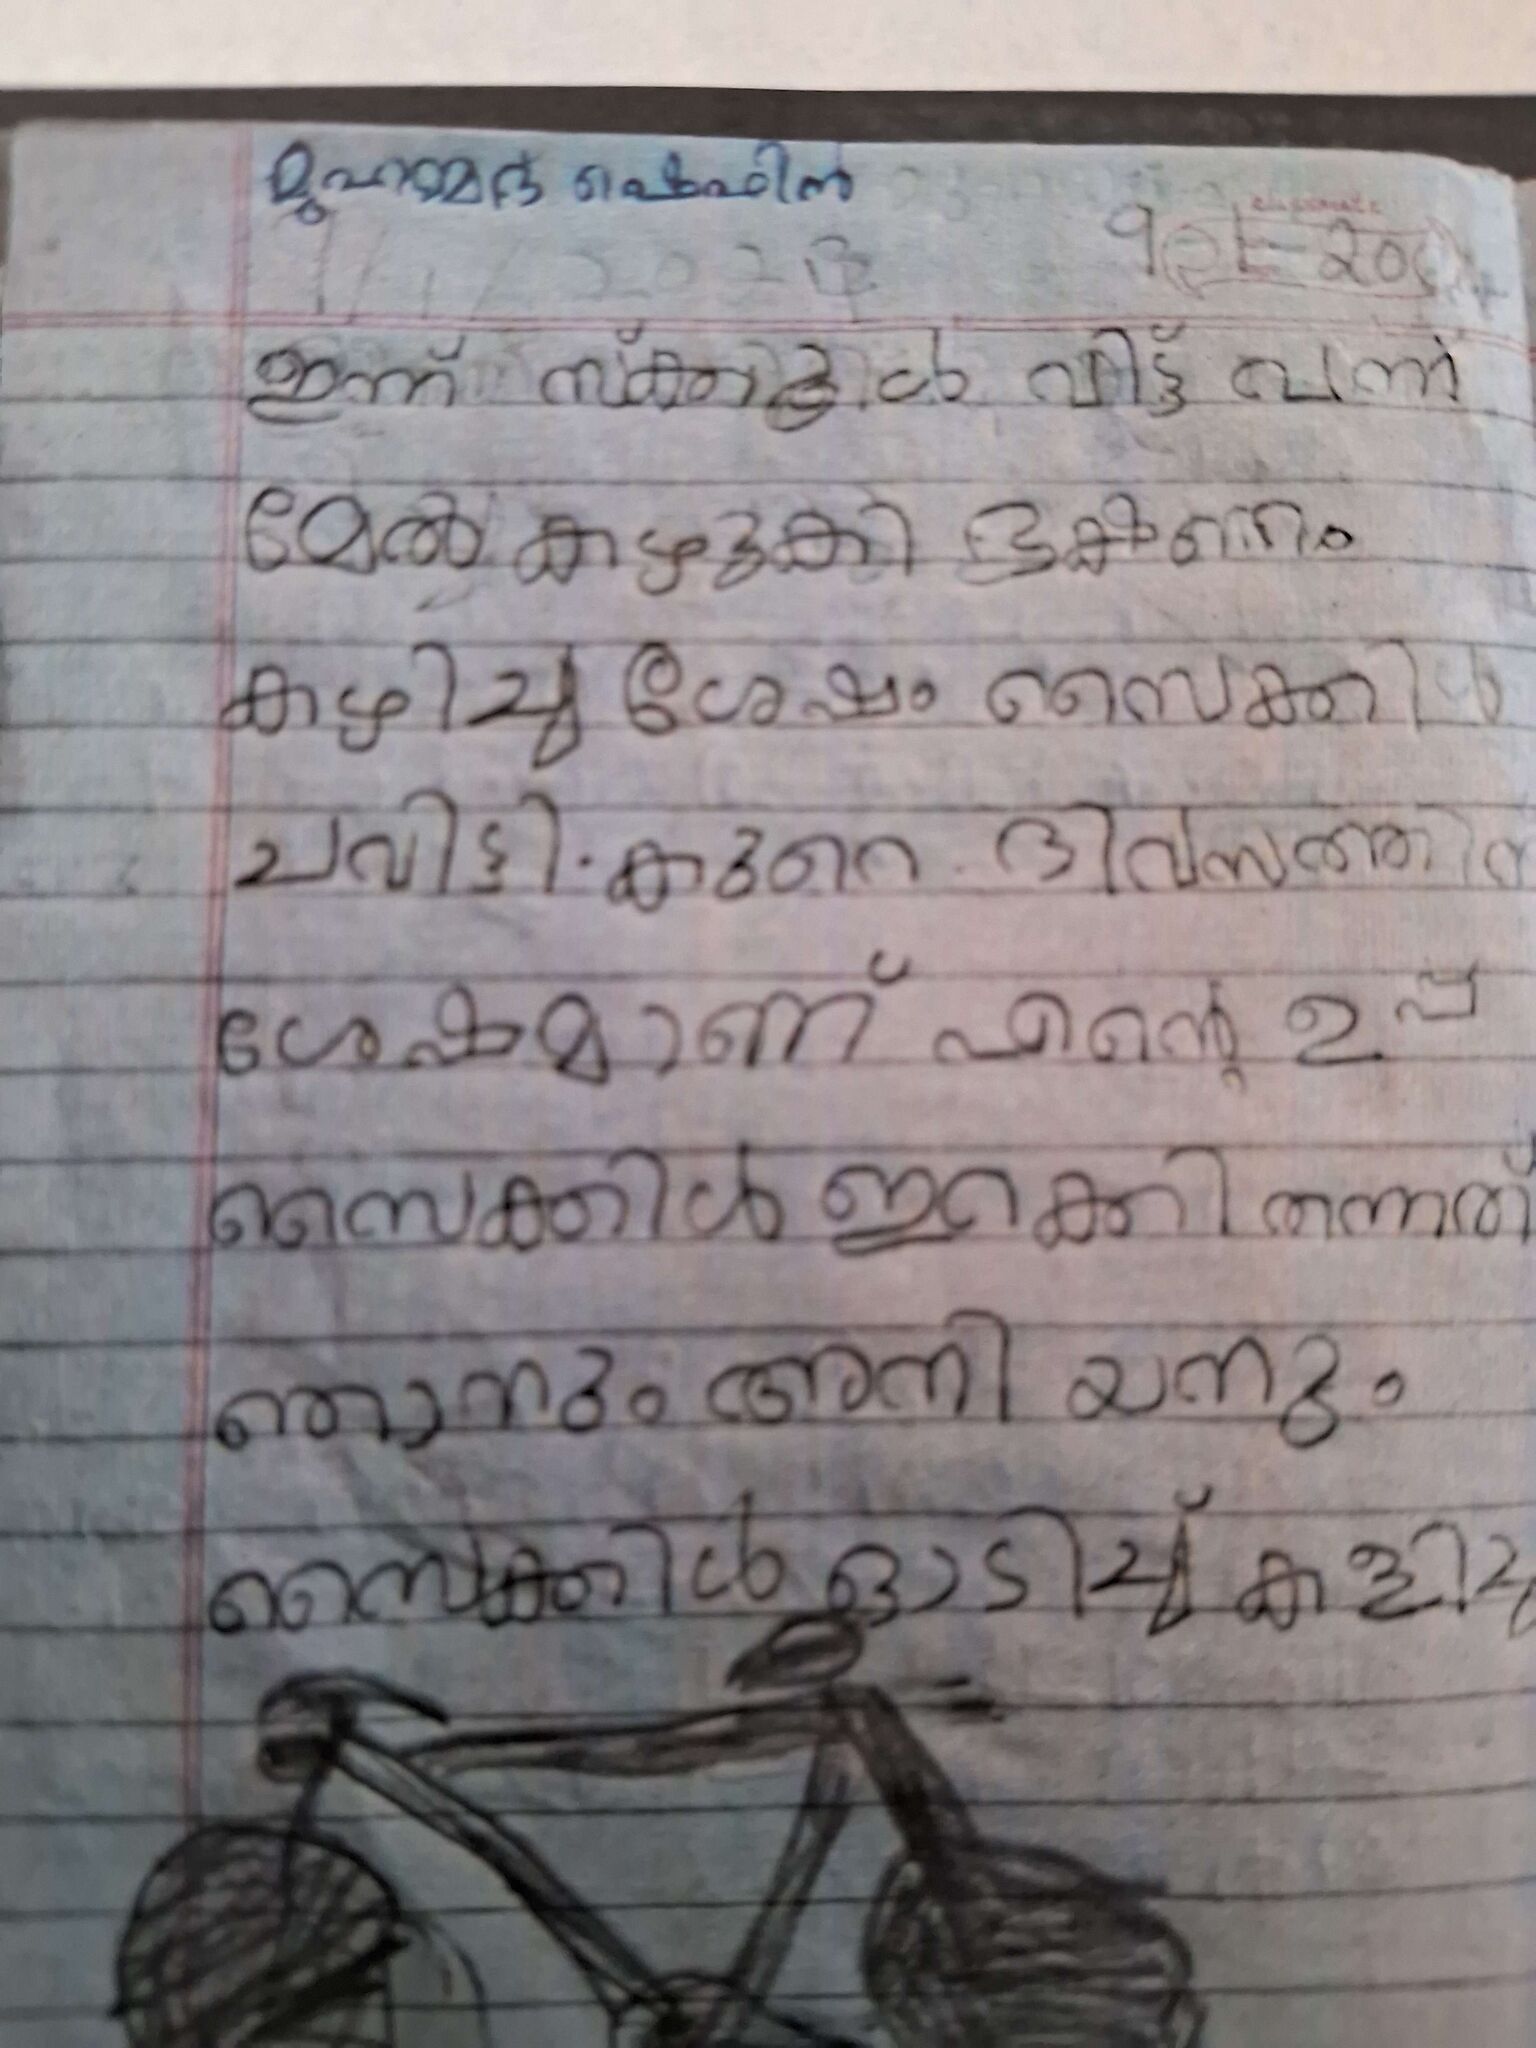 മുഹമ്മദ്
classmate
ഇന്ന് സ്ക്കൂൾ വിട്ട് വന്ന്
മേൽ കഴുകി ഭക്ഷണം
കഴിച്ചു ശേഷം സൈക്കിൾ
ചവിട്ടി. കുറെ ദിവസത്തിന
ശേഷമാണ് എന്റെ ഉപ്പ
സൈക്കിൾ ഇറക്കി തന്നത്
ഞാനും അനിയനും
സൈക്കിൾ ഓടിച്ച് കളിച്ചു